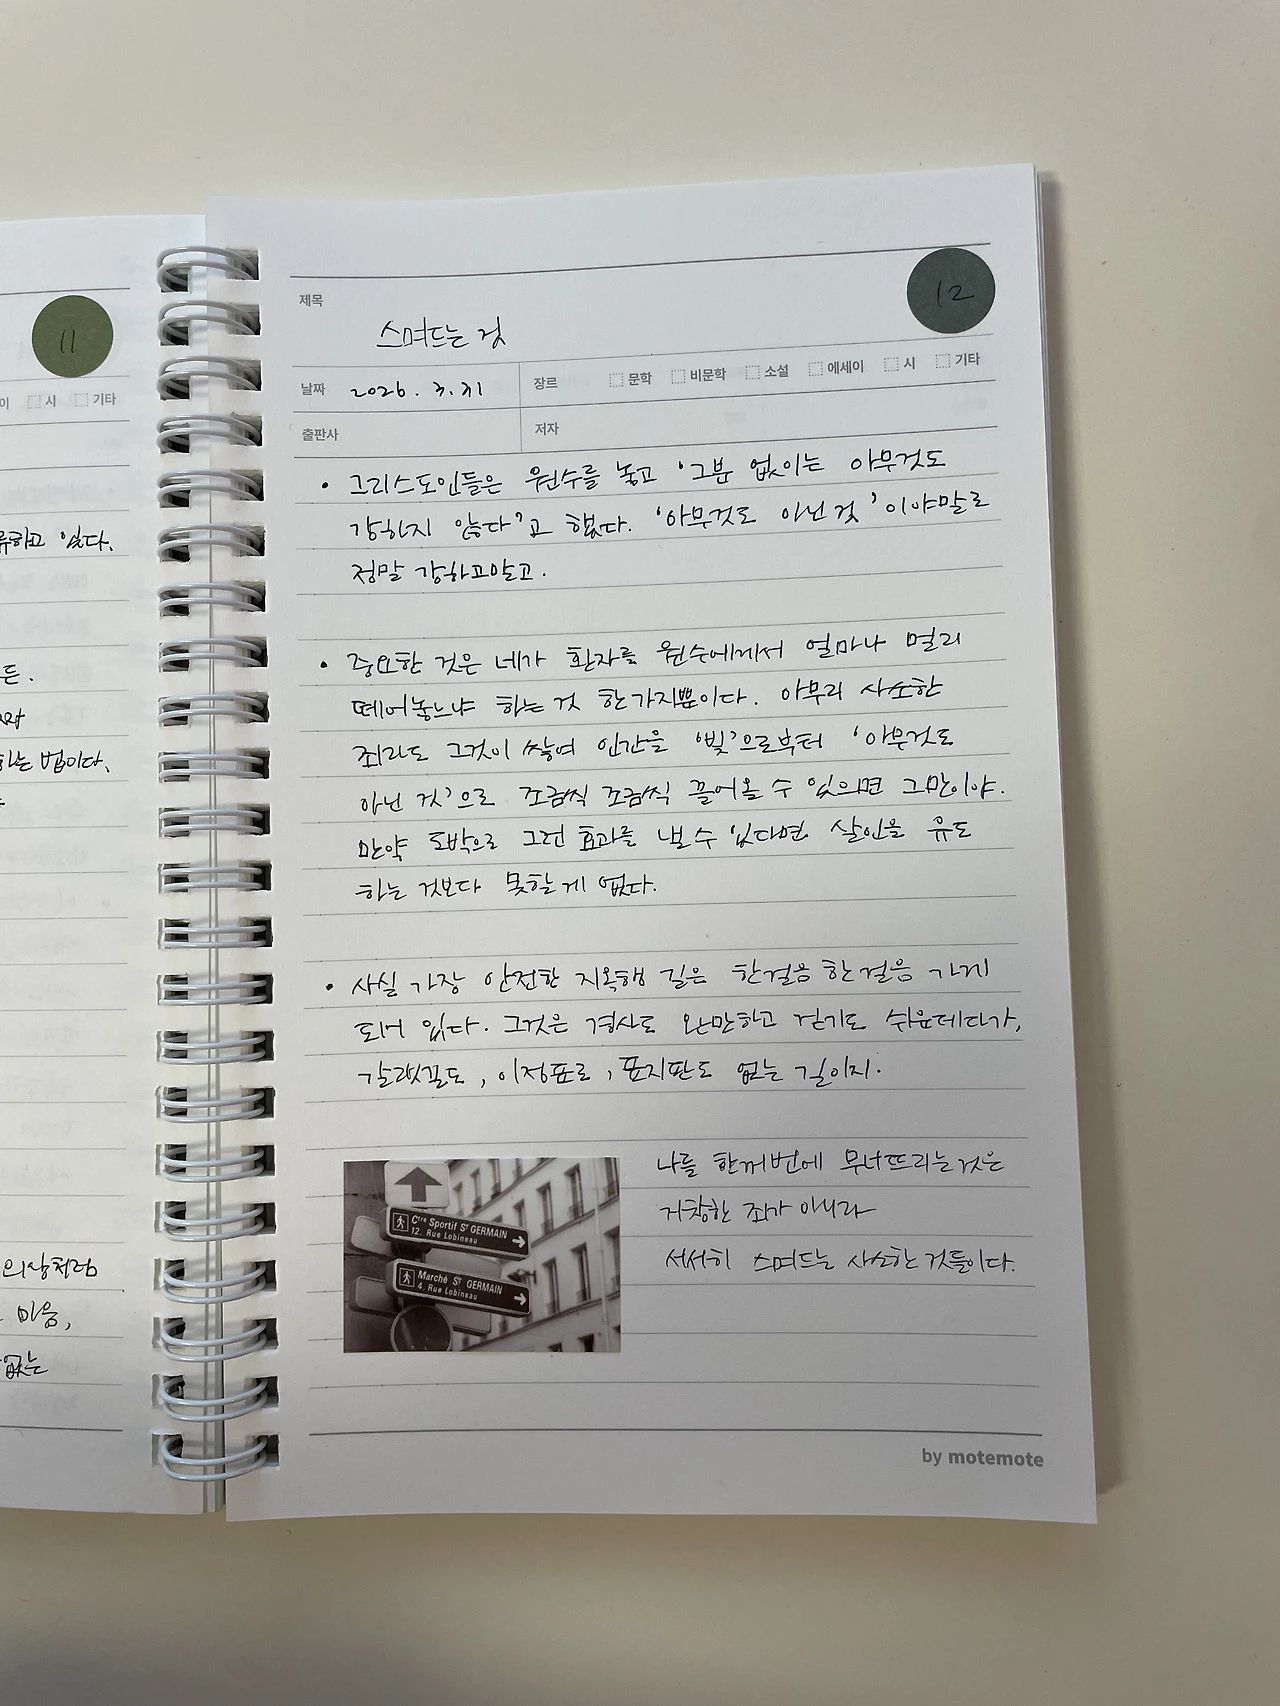 11
이
시
기타
류하고 있다.
든.
하는 법이다.
의상처럼
마음,
없는
12
제목
스며드는 것
날짜 2026. 3. 31
장르 문학 비문학 소설 에세이 시 기타
출판사
저자
• 그리스도인들은 원수를 놓고 '그분 없이는 아무것도
강하지 않다'고 했다. '아무것도 아닌 것'이야말로
정말 강하고말고.
• 중요한 것은 네가 환자를 원수에게서 얼마나 멀리
떼어놓느냐 하는 것 한가지뿐이다. 아무리 사소한
죄라도 그것이 쌓여 인간을 '빛'으로부터 '아무것도
아닌 것'으로 조금씩 조금씩 끌어올 수 있으면 그만이야.
만약 도박으로 그런 효과를 낼 수 있다면 살인을 유도
하는 것보다 못할 게 없다.
• 사실 가장 안전한 지옥행 길은 한걸음 한걸음 가게
되어 있다. 그것은 경사도 완만하고 걷기도 쉬운데다가,
갈랫길도, 이정표도, 표지판도 없는 길이지.
Ctre Sportif St GERMAIN
12. Rue Lobineau
Marché St GERMAIN
4. Rue Lobineau
나를 한꺼번에 무너뜨리는것은
거창한 죄가 아니라
서서히 스며드는 사소한 것들이다.
by motemote